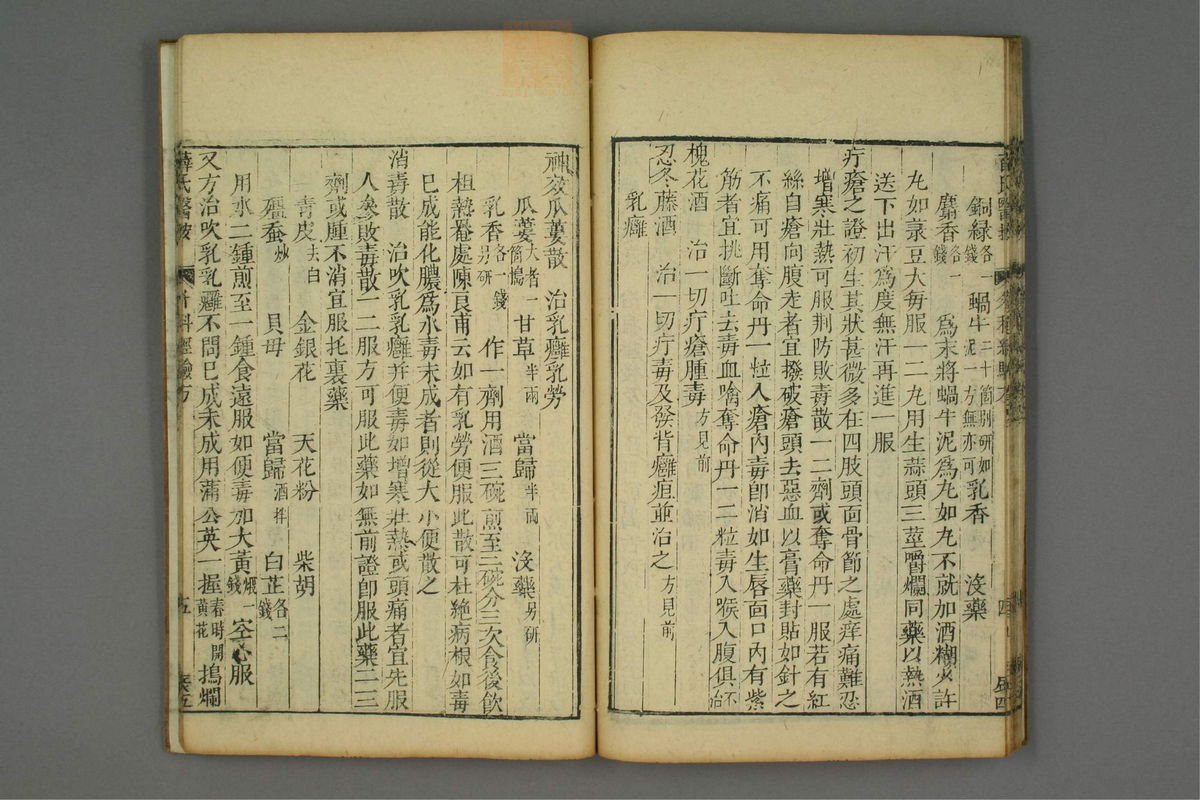 銅綠各一錢 蝸牛二十箇别研如泥一方無亦可 乳香 沒藥
麝香各一錢 爲末將蝸牛泥爲丸如丸不就加酒糊少許
丸如菉豆大每服一二丸用生蒜頭三莖嚼爛同藥以熱酒
送下出汗爲度無汗再進一服
疔瘡之證初生其狀甚微多在四肢頭面骨節之處痒痛難忍
增寒壯熱可服荆防敗毒散一二劑或奪命丹一服若有紅
絲自瘡向腹走者宜撥破瘡頭去惡血以膏藥封貼如針之
不痛可用奪命丹一粒入瘡內毒卽消如生唇面口內有紫
筋者宜挑斷吐去毒血噙奪命丹一二粒毒入喉入腹俱不治
槐花酒 治一切疔瘡腫毒方見前
忍冬藤酒 治一切疔毒及發背癰疽並治之方見前
乳癰
神效瓜蔞散 治乳癰乳勞
瓜蔞大者一箇搗 甘草半兩 當歸半兩 沒藥另研
乳香各一錢另研 作一劑用酒三碗煎至二碗分三次食後飲
柤熱罨處陳良甫云如有乳勞便服此散可杜絶病根如毒
已成能化膿爲水毒未成者則從大小便散之
消毒散 治吹乳乳癰并便毒如增寒壯熱或頭痛者宜先服
人參敗毒散一二服方可服此藥如無前證卽服此藥二三
劑或腫不消宜服托裏藥
青皮去白 金銀花 天花粉 柴胡
殭蚕炒 貝母 當歸酒拌 白芷各二錢
用水二鍾煎至一鍾食遠服如便毒加大黃煨一錢空心服
又方治吹乳乳癰不問已成未成用蒲公英一握春時開黃花搗爛
薛氏醫按 外科經驗方 五